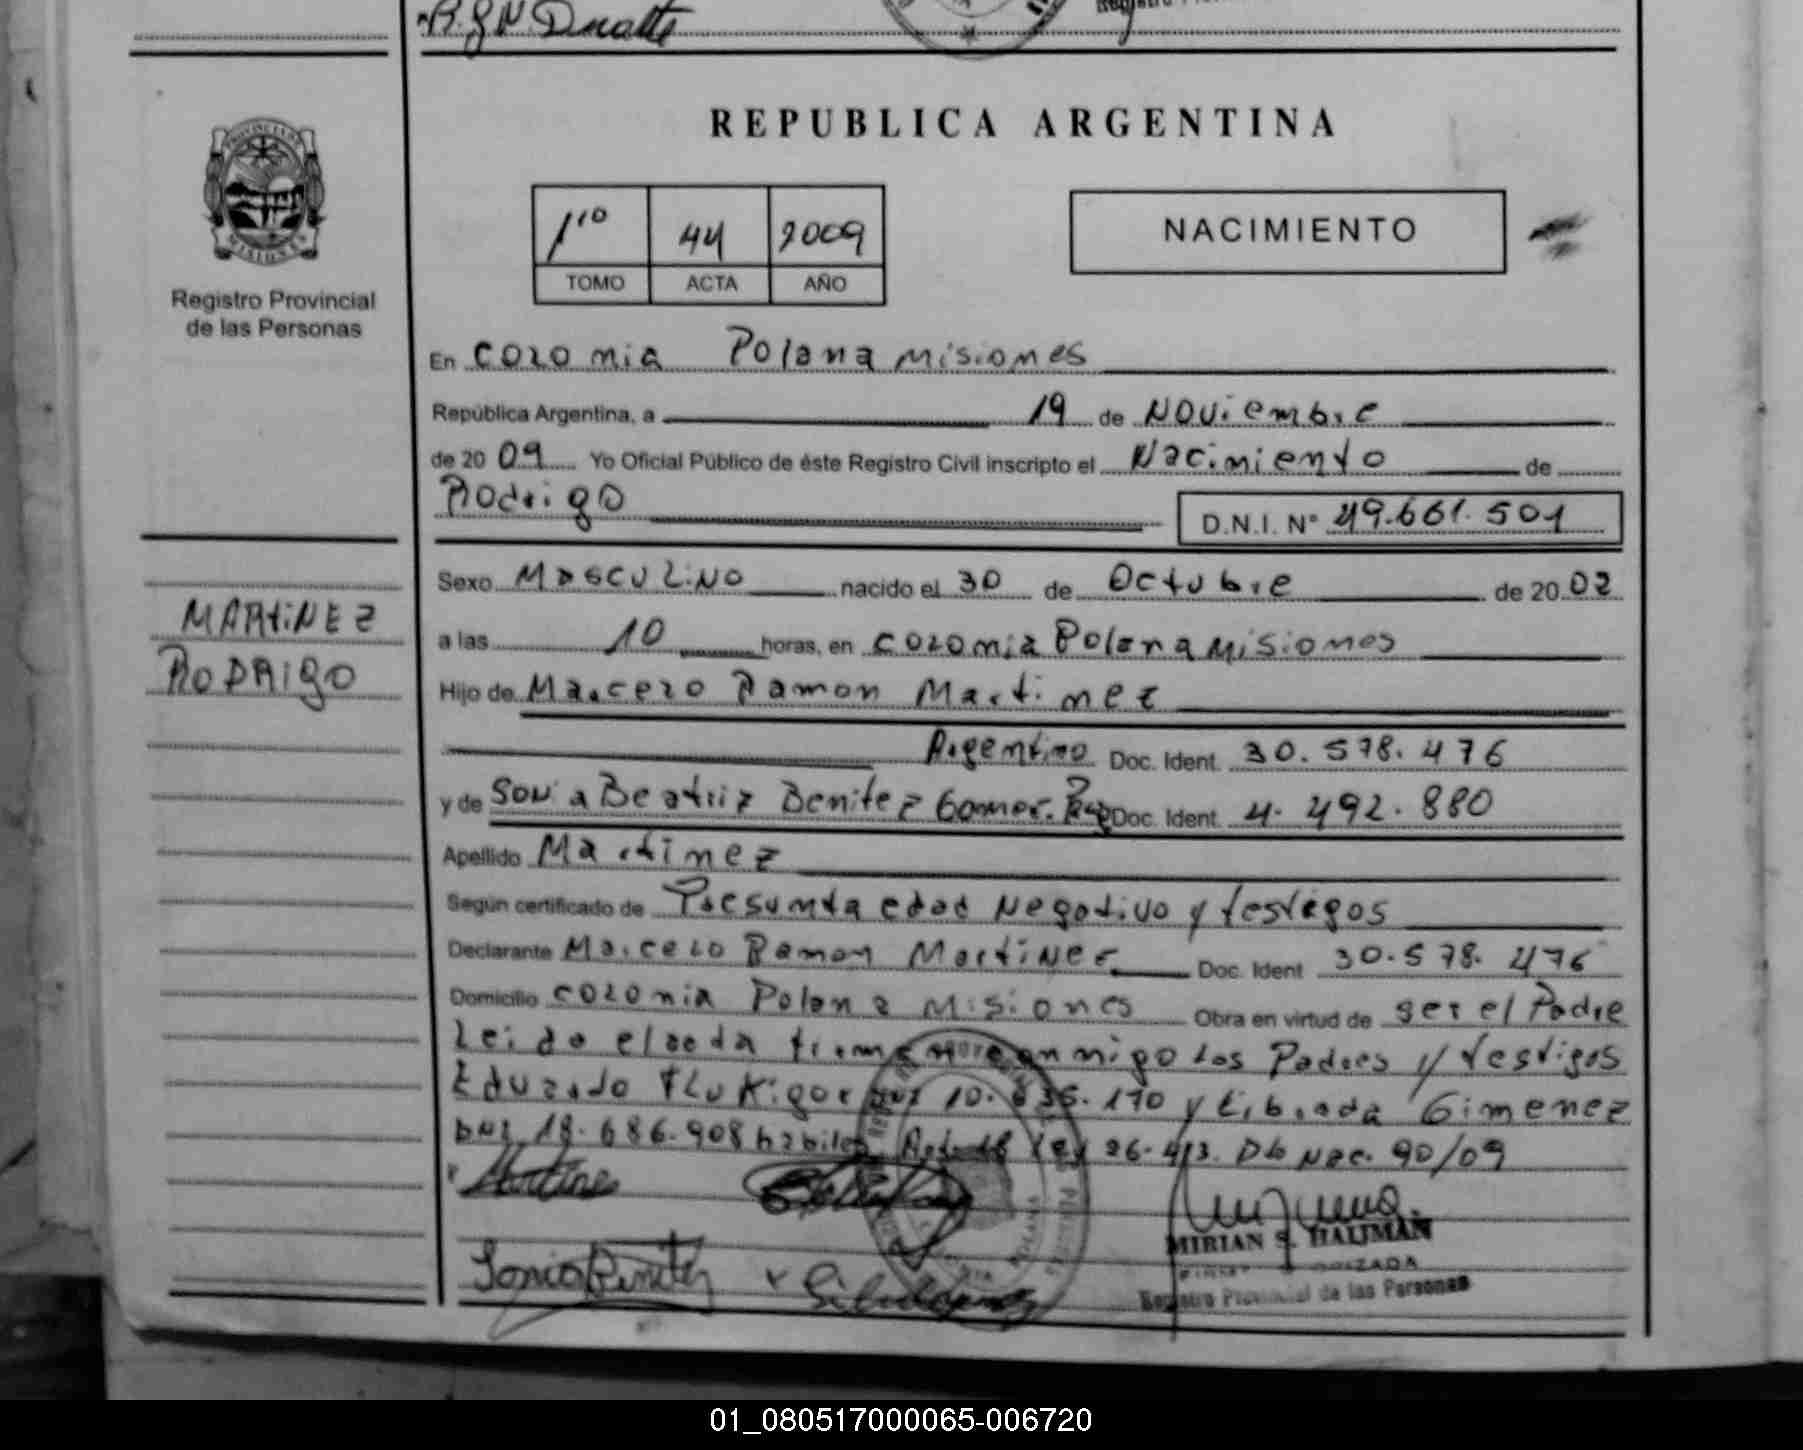 R. g N. Duarte
REPUBLICA ARGENTINA
1ro 44 2009
TOMO ACTA AÑO
NACIMIENTO
Registro Provincial
de las Personas
En Colonia Polana Misiones
República Argentina, a 19 de Noviembre
de 2009 Yo Oficial Público de éste Registro Civil inscripto el Nacimiento de
Rodrigo D.N.I. N° 49.661.501
Sexo Masculino nacido el 30 de Octubre de 2002
MARTINEZ
RODRIGO
a las 10 horas, en Colonia Polana Misiones
Hijo de Marcelo Ramon Martinez
Argentino Doc. Ident. 30.578.476
y de Sonia Beatriz Benitez Gomez. Doc. Ident. 4.492.880
Apellido Martinez
Según certificado de Presunta edad Negativo y testigos
Declarante Marcelo Ramon Martinez Doc. Ident 30.578.476
Domicilio Colonia Polana Misiones Obra en virtud de ser el Padre
Leida el acta firman conmigo los Padres y testigos
Eduardo DNI 10.636.170 y Librada Gimenez
DNI 18.686.908 habiles Ley 26.413. Dto Nac. 90/09
Martinez
Sonia Benitez
MIRIAN S. HAUMAN
Registro Provincial de las Personas
01_080517000065-006720